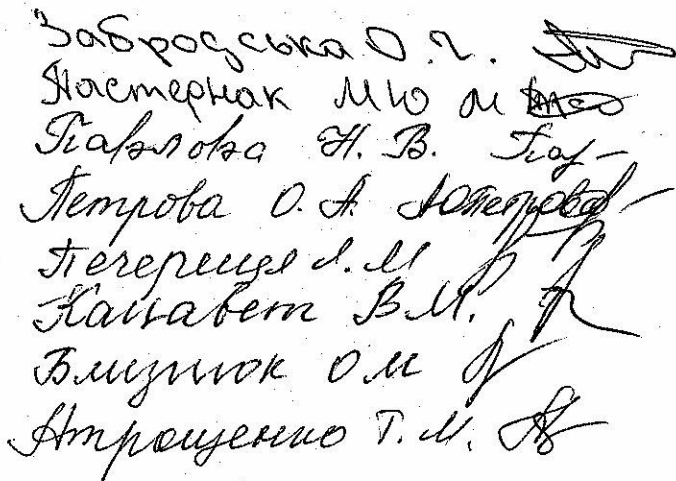 Забродська О. Г.
Пастернак М Ю
Павлова Н. В.
Петрова О. А.
Печериця Л. М
Канавет В М.
Близнюк О М
Атрощенко Т. М.